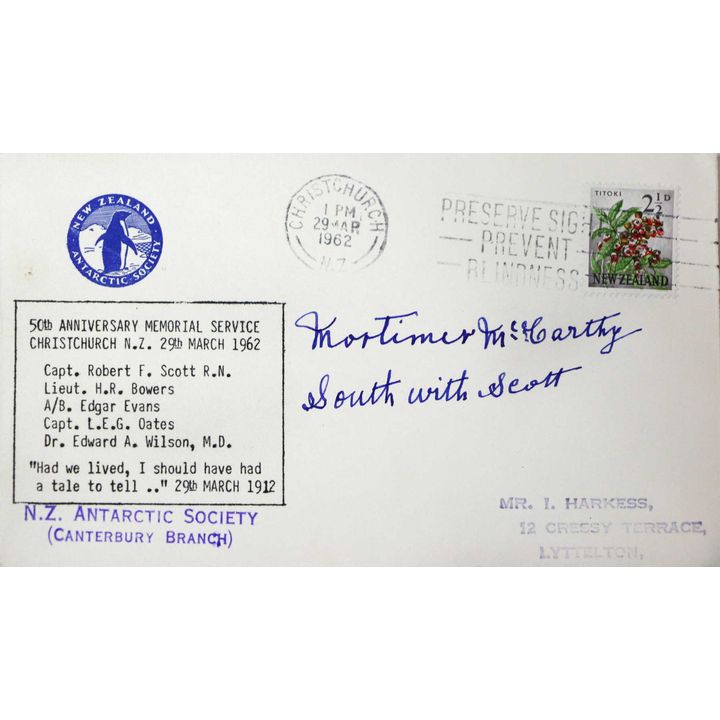 NEW ZEALAND
ANTARCTIC SOCIETY
CHRISTCHURCH
1 PM
29 MAR
1962
N.Z.
PRESERVE SIGH
PREVENT
BLINDNESS
TITOKI
2½D
NEW ZEALAND
50th ANNIVERSARY MEMORIAL SERVICE
CHRISTCHURCH N.Z. 29th MARCH 1962
Capt. Robert F. Scott R.N.
Lieut. H.R. Bowers
A/B. Edgar Evans
Capt. L.E.G. Oates
Dr. Edward A. Wilson, M.D.
"Had we lived, I should have had
a tale to tell .." 29th MARCH 1912
N.Z. ANTARCTIC SOCIETY
(CANTERBURY BRANCH)
Mortimer McCarthy
South with Scott
MR. I. HARKESS,
12 CRESSY TERRACE,
LYTTELTON,